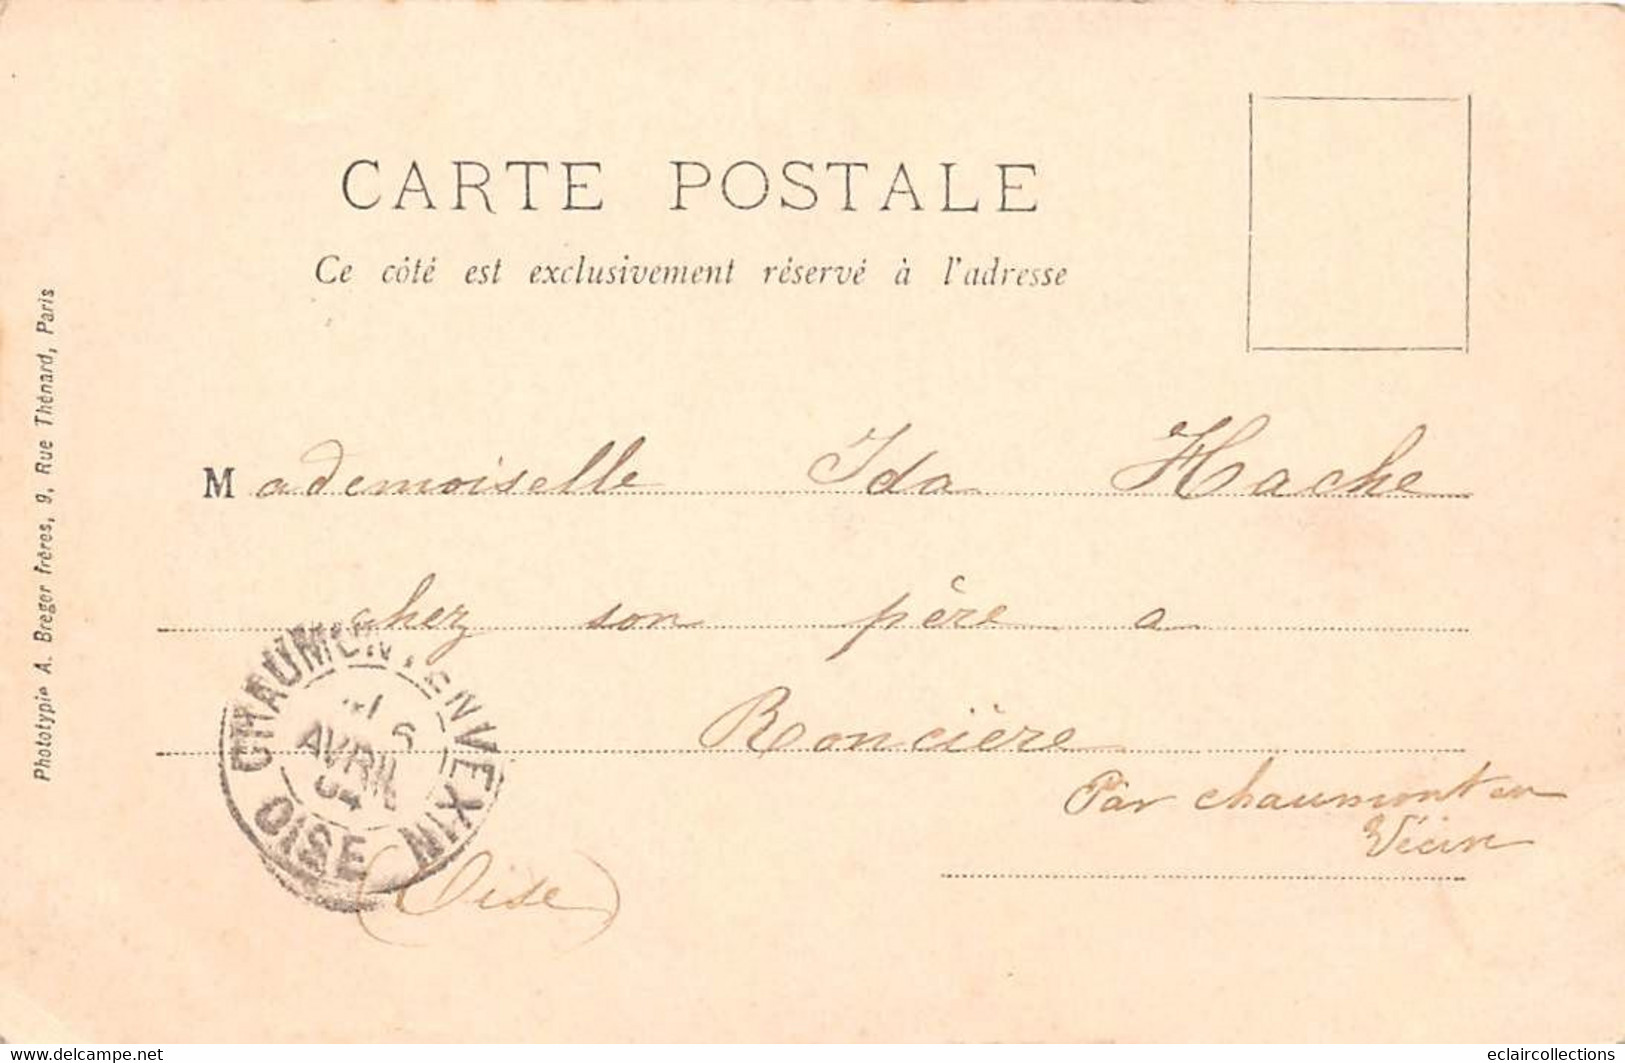 CARTE POSTALE
Ce côté est exclusivement réservé à l'adresse
Mademoiselle Ida Hache
chez son père a
Roncière
Par chaumont en
Vécin
(Oise)
CHAUMONT EN VEXIN
6
AVRIL
04
OISE
Phototypie A. Breger frères, 9, Rue Thénard, Paris
www.delcampe.net
eclaircollections